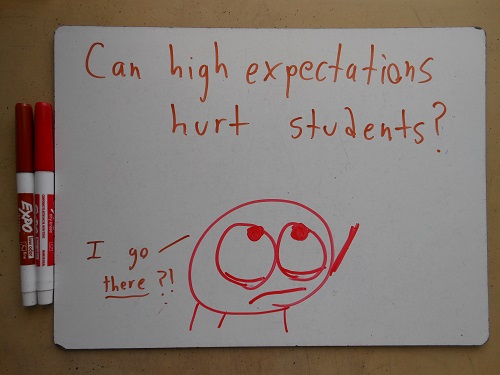 Can high expectations
hurt students?
I go
there?!
EXPO